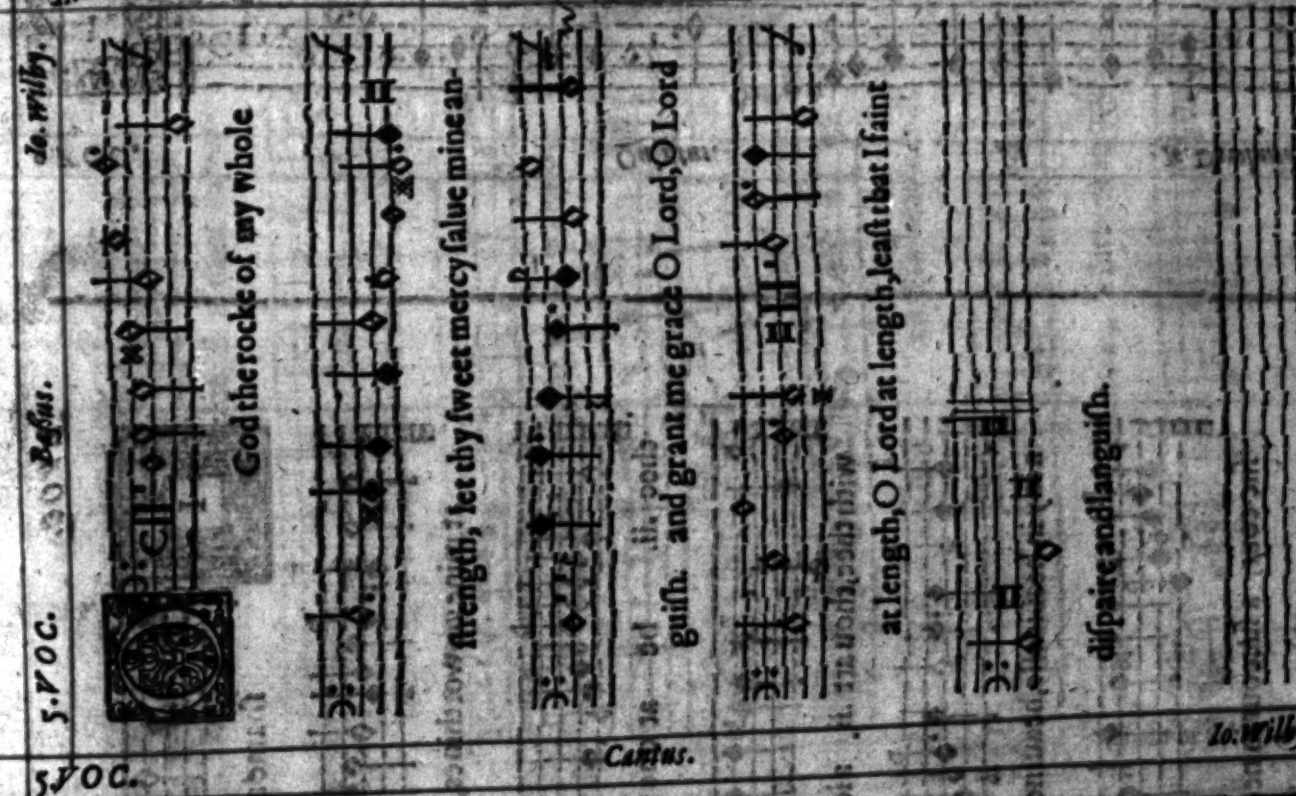 5. VOC. Bassus. Io. Wilby.
God the rocke of my whole
strength, let thy sweet mercy salue mine an-
guish. and grant me grace O Lord, O Lord
at length, O Lord at length, least that I faint
dispaire and languish.
5 VOC. Cantus. Io. Wilb